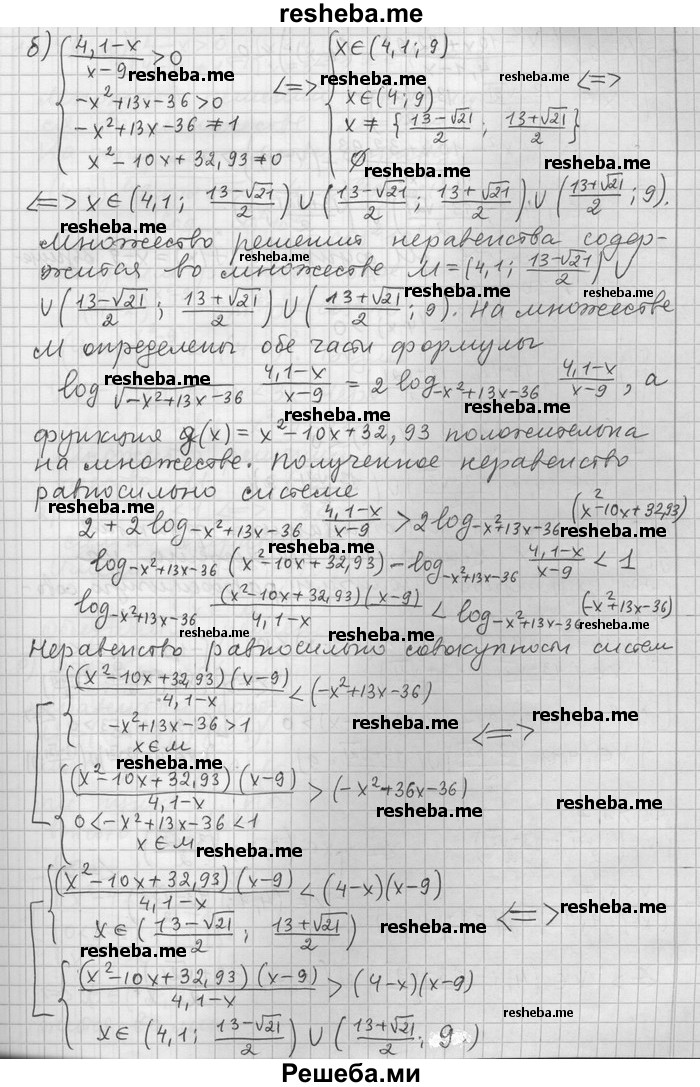 resheba.me
б) { (4,1-x)/(x-9) > 0
-x²+13x-36 > 0
-x²+13x-36 ≠ 1
x²-10x+32,93 ≠ 0
<=> { x∈(4,1; 9)
x∈(4; 9)
x ≠ {(13-√21)/2; (13+√21)/2}
∅ <=>
<=> x∈(4,1; (13-√21)/2) ∪ ((13-√21)/2; (13+√21)/2) ∪ ((13+√21)/2; 9).
Множество решений неравенства содер-
жится во множестве M=(4,1; (13-√21)/2) ∪
∪ ((13-√21)/2; (13+√21)/2) ∪ ((13+√21)/2; 9). На множестве
M определены обе части формулы
log_√(-x²+13x-36) (4,1-x)/(x-9) = 2 log_(-x²+13x-36) (4,1-x)/(x-9), а
функция g(x) = x²-10x+32,93 положительна
на множестве. Полученное неравенство
равносильно системе
2 + 2 log_(-x²+13x-36) (4,1-x)/(x-9) > 2 log_(-x²+13x-36) (x²-10x+32,93)
log_(-x²+13x-36) (x²-10x+32,93) - log_(-x²+13x-36) (4,1-x)/(x-9) < 1
log_(-x²+13x-36) (x²-10x+32,93)(x-9)/(4,1-x) < log_(-x²+13x-36) (-x²+13x-36)
Неравенство равносильно совокупности систем
[ { (x²-10x+32,93)(x-9)/(4,1-x) < (-x²+13x-36)
-x²+13x-36 > 1
x∈M <=>
{ (x²-10x+32,93)(x-9)/(4,1-x) > (-x²+36x-36)
0 < -x²+13x-36 < 1
x∈M
[ { (x²-10x+32,93)(x-9)/(4,1-x) < (4-x)(x-9)
x∈((13-√21)/2; (13+√21)/2) <=>
{ (x²-10x+32,93)(x-9)/(4,1-x) > (4-x)(x-9)
x∈(4,1; (13-√21)/2) ∪ ((13+√21)/2; 9)
Решеба.ми